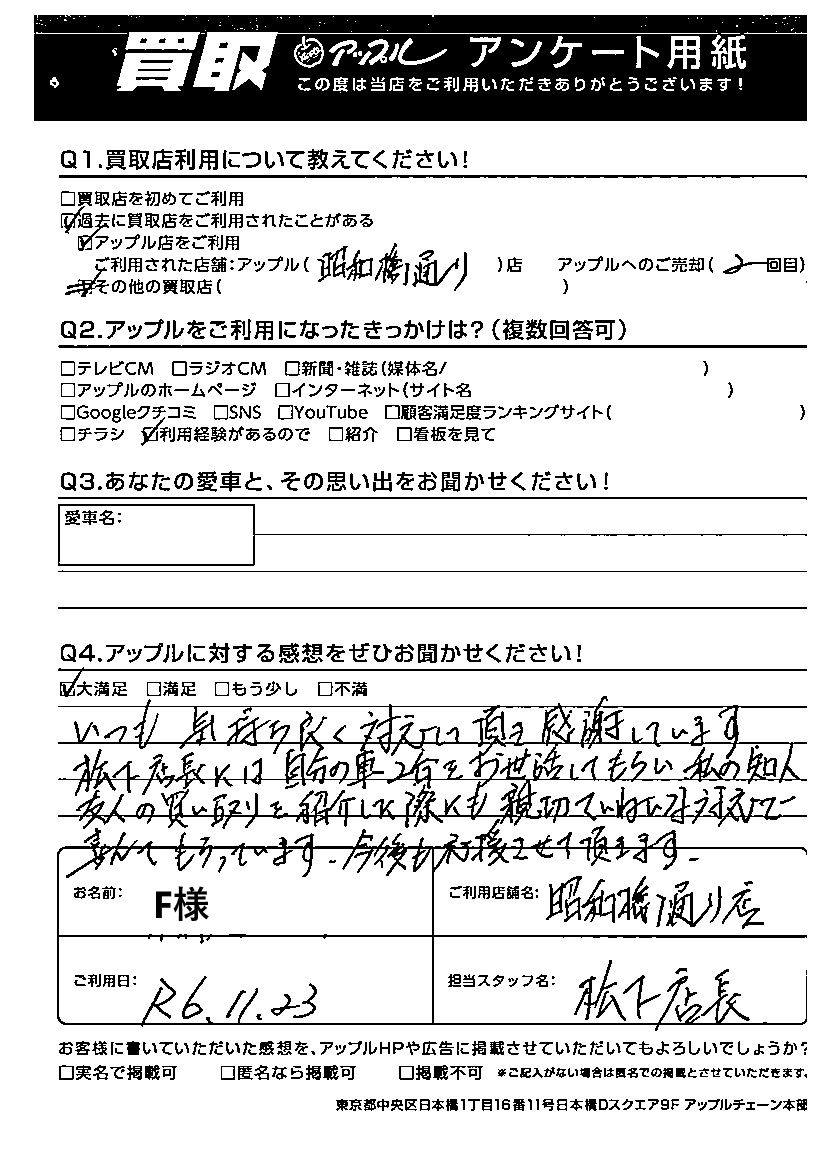 買取 アップル アンケート用紙
この度は当店をご利用いただきありがとうございます!
Q1.買取店利用について教えてください!
□買取店を初めてご利用
☑過去に買取店をご利用されたことがある
☑アップル店をご利用
ご利用された店舗:アップル( 昭和橋通り )店 アップルへのご売却( 2 回目)
□その他の買取店( )
Q2.アップルをご利用になったきっかけは?(複数回答可)
□テレビCM □ラジオCM □新聞・雑誌(媒体名/ )
□アップルのホームページ □インターネット(サイト名 )
□Googleクチコミ □SNS □YouTube □顧客満足度ランキングサイト( )
□チラシ ☑利用経験があるので □紹介 □看板を見て
Q3.あなたの愛車と、その思い出をお聞かせください!
愛車名:
Q4.アップルに対する感想をぜひお聞かせください!
☑大満足 □満足 □もう少し □不満
いつも気持ち良く対応して頂き感謝しています
松下店長には自分の車2台をお世話してもらい私の知人
友人の買い取りを紹介した際にも親切ていねいな対応で
喜んでもらっています。今後も応援させて頂きます。
お名前: F様 ご利用店舗名: 昭和橋通り店
ご利用日: R6.11.23 担当スタッフ名: 松下店長
お客様に書いていただいた感想を、アップルHPや広告に掲載させていただいてもよろしいでしょうか?
□実名で掲載可 □匿名なら掲載可 □掲載不可 ※ご記入がない場合は匿名での掲載とさせていただきます。
東京都中央区日本橋1丁目16番11号日本橋Dスクエア9F アップルチェーン本部